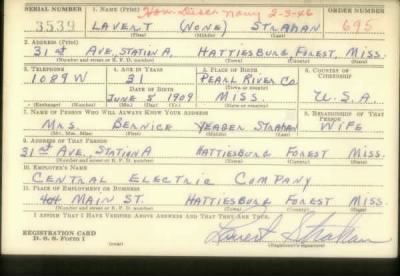 SERIAL NUMBER 1. NAME (Print) ORDER NUMBER
2-3-46
3539 LAVERT (NONE) STRAHAN 695
(First) (Middle) (Last)
2. ADDRESS (Print)
31st AVE, STATION A, HATTIESBURG FOREST, MISS.
(Number and street or R. F. D. number) (Town) (County) (State)
3. TELEPHONE 4. AGE IN YEARS 5. PLACE OF BIRTH 6. COUNTRY OF CITIZENSHIP
1089W 31 PEARL RIVER CO.
DATE OF BIRTH (Town or county)
JUNE 5 1909 MISS. U.S.A.
(Exchange) (Number) (Mo.) (Day) (Yr.) (State or country)
7. NAME OF PERSON WHO WILL ALWAYS KNOW YOUR ADDRESS 8. RELATIONSHIP OF THAT PERSON
MRS. BERNICE YEAGER STRAHAN WIFE
(Mr., Mrs., Miss) (First) (Middle) (Last)
9. ADDRESS OF THAT PERSON
31st AVE, STATION A HATTIESBURG FOREST MISS.
(Number and street or R. F. D. number) (Town) (County) (State)
10. EMPLOYER'S NAME
CENTRAL ELECTRIC COMPANY
11. PLACE OF EMPLOYMENT OR BUSINESS
MAIN ST. HATTIESBURG FOREST MISS.
(Number and street or R. F. D. number) (Town) (County) (State)
I AFFIRM THAT I HAVE VERIFIED ABOVE ANSWERS AND THAT THEY ARE TRUE.
REGISTRATION CARD
D. S. S. Form 1 (over) (Registrant's signature)
Lavert Strahan